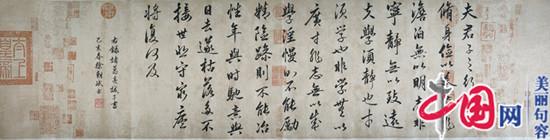 夫君子之行
脩身儉以養
澹泊無以明志非
寧靜無以致遠
夫學須靜也才
須學也非學無以
廣才非志無以成
學淫慢則不能勵
精險躁則不能冶
性年與時馳意與
日去遂枯落多不
接世悲守窮廬
將復何及
右錄諸葛亮誡子書
己亥春徐
中国网
美丽句容